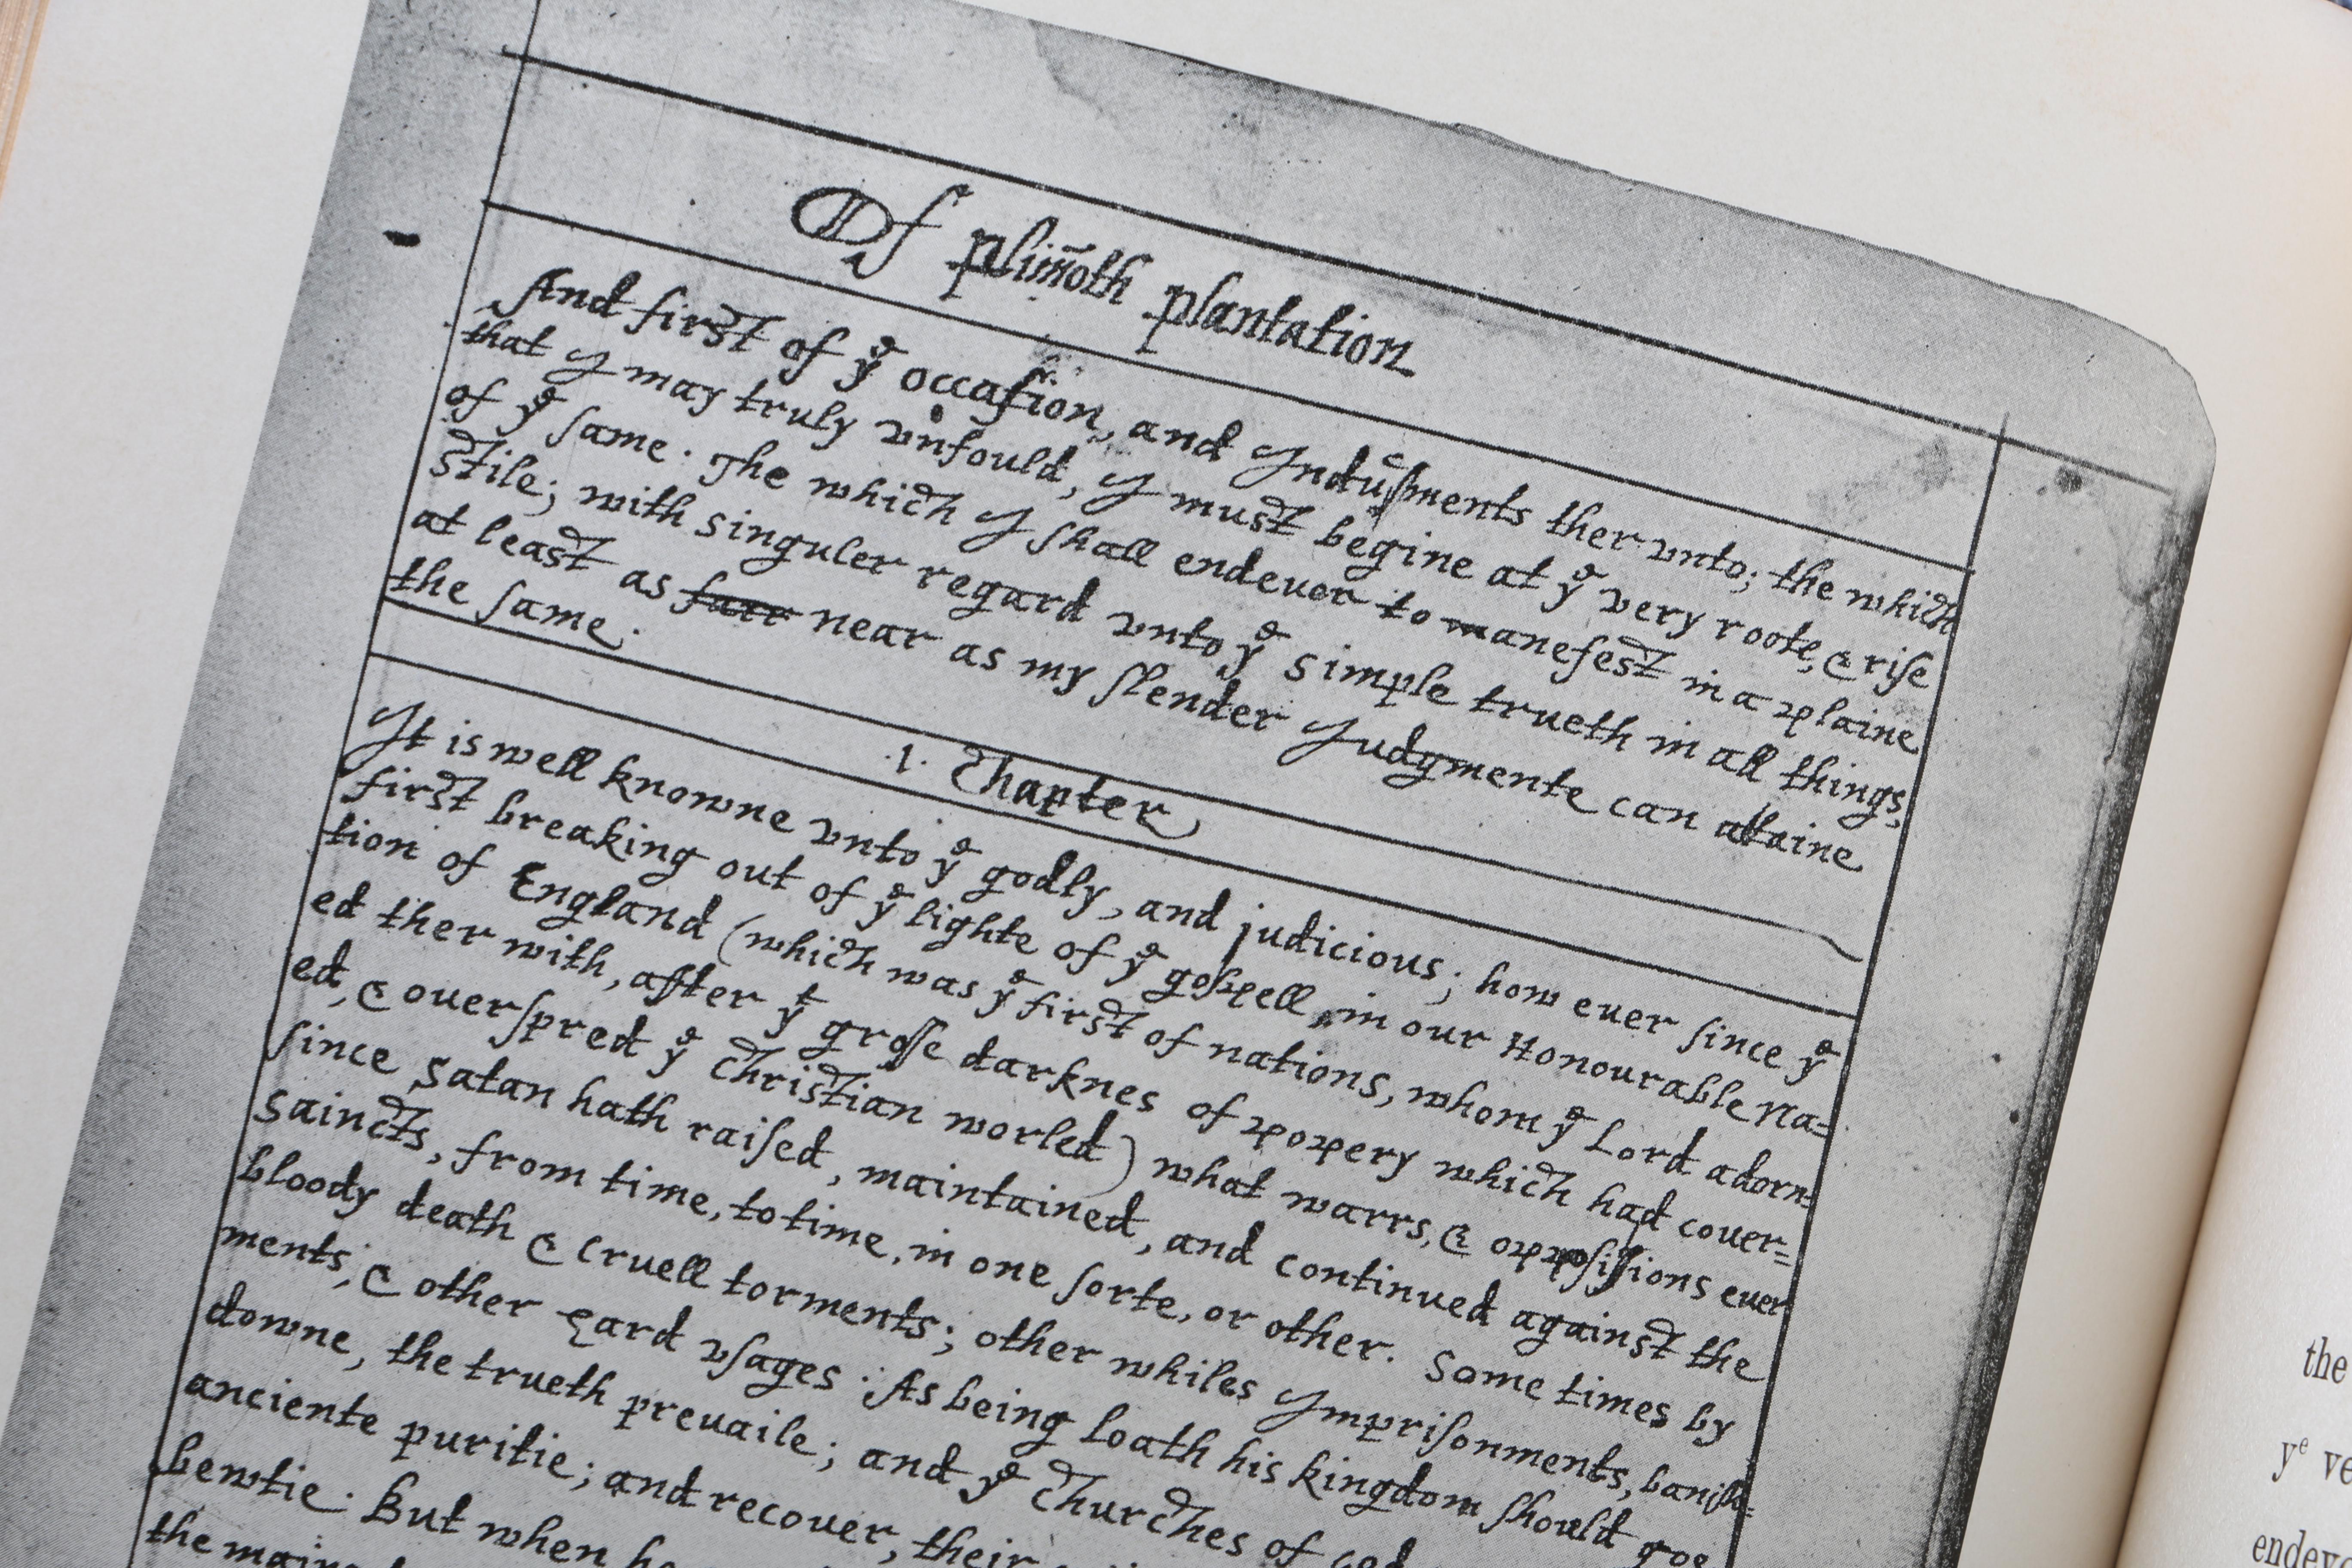 Of plim̄oth plantation.
And first of yᵉ occasion, and Indusments ther unto; the which
that I may truly unfould, I must begine at yᵉ very roote, & rise
of yᵉ same. The which I shall endevor to manefest in a plaine
stile; with singuler regard unto yᵉ simple trueth in all things,
at least as near as my slender Judgmente can attaine
the same.
.1. Chapter
It is well knowne vnto yᵉ godly, and judicious; how ever since yᵉ
first breaking out of yᵉ lighte of yᵉ gospell, in our Honourable Na=
tion of England (which was yᵉ first of nations, whom yᵉ Lord adorn=
ed ther with, after yᵗ grosse darknes of popery which had cover=
ed, & overspred yᵉ Christian worled) what warrs, & oppossitions ever
since Satan hath raised, maintained, and continued against the
Saincts, from time, to time, in one sorte, or other. Some times by
bloody death & cruell torments; other whiles Imprisonments, banish=
ments, & other hard vsages. As being loath his kingdom should goe
downe, the trueth prevaile; and yᵉ Churches of God
anciente puritie; and recover, their
bewtie. But when he
the main
the
yᵉ ve
endev